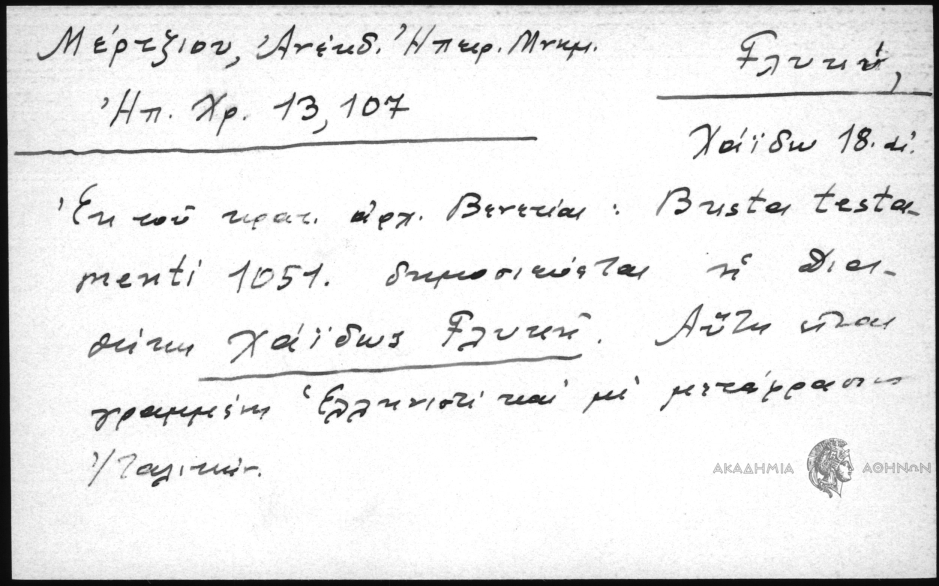 Μέρτζιου, Ἀνέκδ. Ἠπειρ. Μνημ.
Ἠπ. Χρ. 13, 107
Γλυκή,
Χάϊδω 18. αἰ.
Ἐκ τοῦ κρατ. ἀρχ. Βενετίας : Busta testa-
menti 1051. δημοσιεύεται ἡ Δια-
θήκη Χάϊδως Γλυκή. Αὕτη εἶναι
γραμμένη Ἑλληνιστί καί μέ μετάφρασιν
Ἰταλικήν.
ΑΚΑΔΗΜΙΑ ΑΘΗΝΩΝ